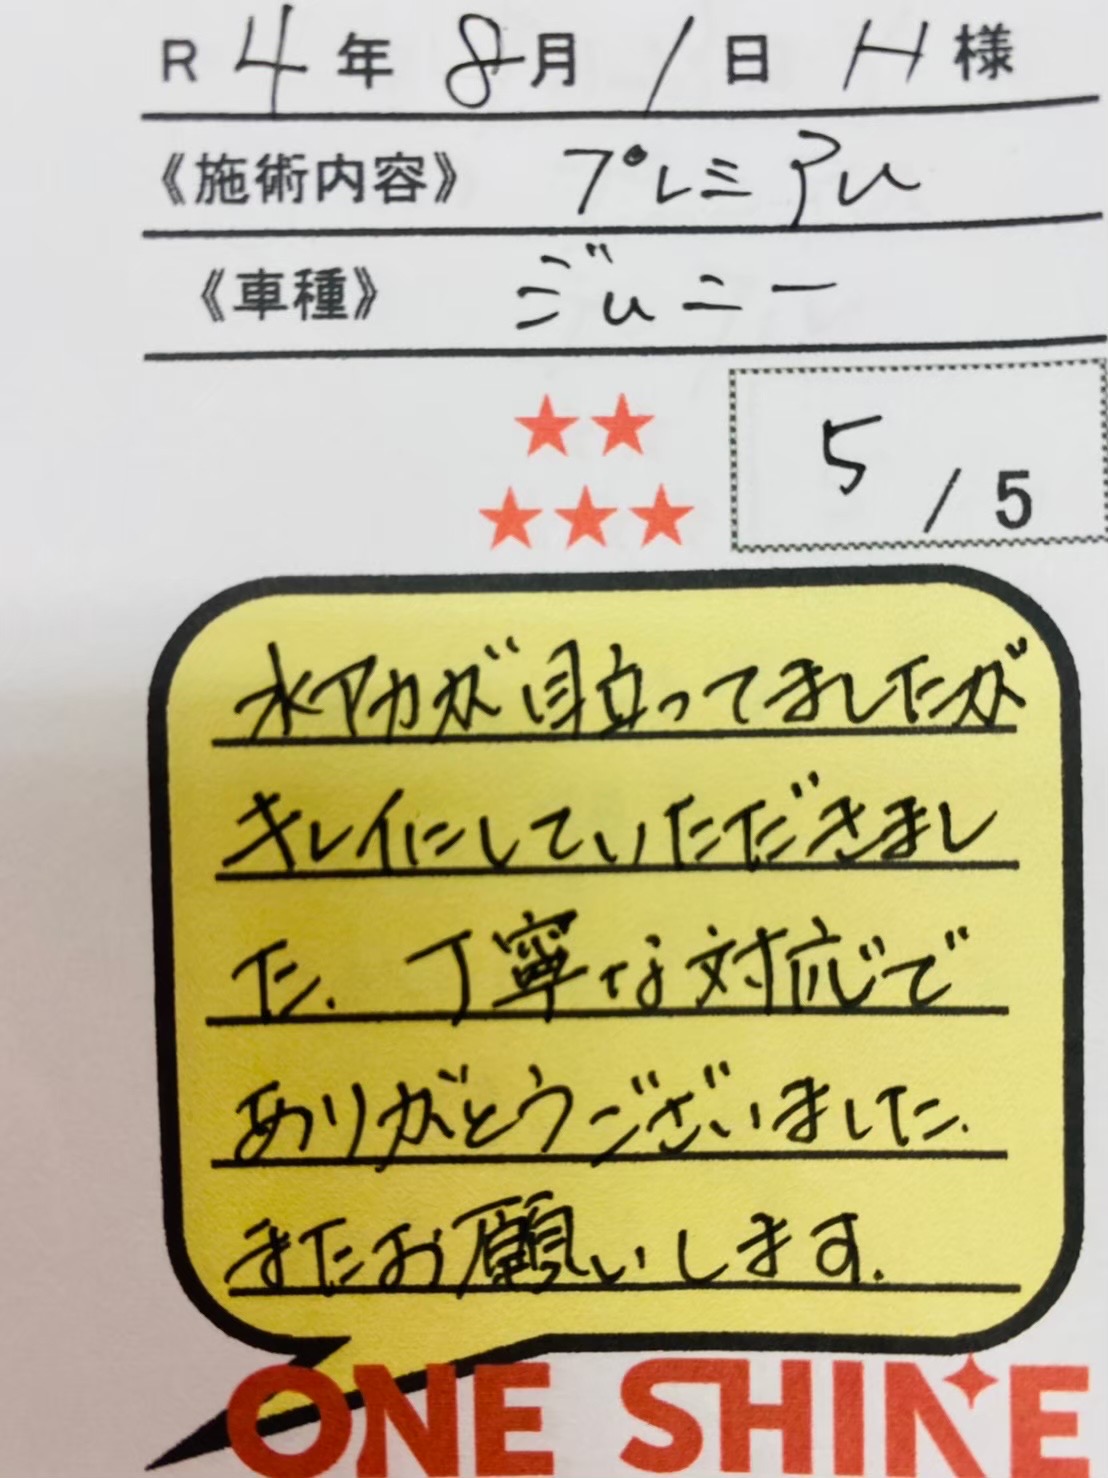 R 4年 8月 1日 H様
《施術内容》 プレミアム
《車種》 ジムニー
5 / 5
水アカが目立ってましたが
キレイにしていただきまし
た. 丁寧な対応で
ありがとうございました.
またお願いします.
ONE SHINE